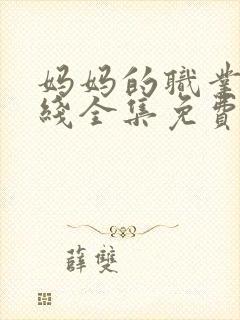 妈妈的職業
綫全集免費
薛雙